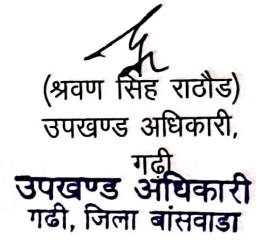 (श्रवण सिंह राठौड)
उपखण्ड अधिकारी,
गढी
उपखण्ड अधिकारी
गढी, जिला बांसवाडा